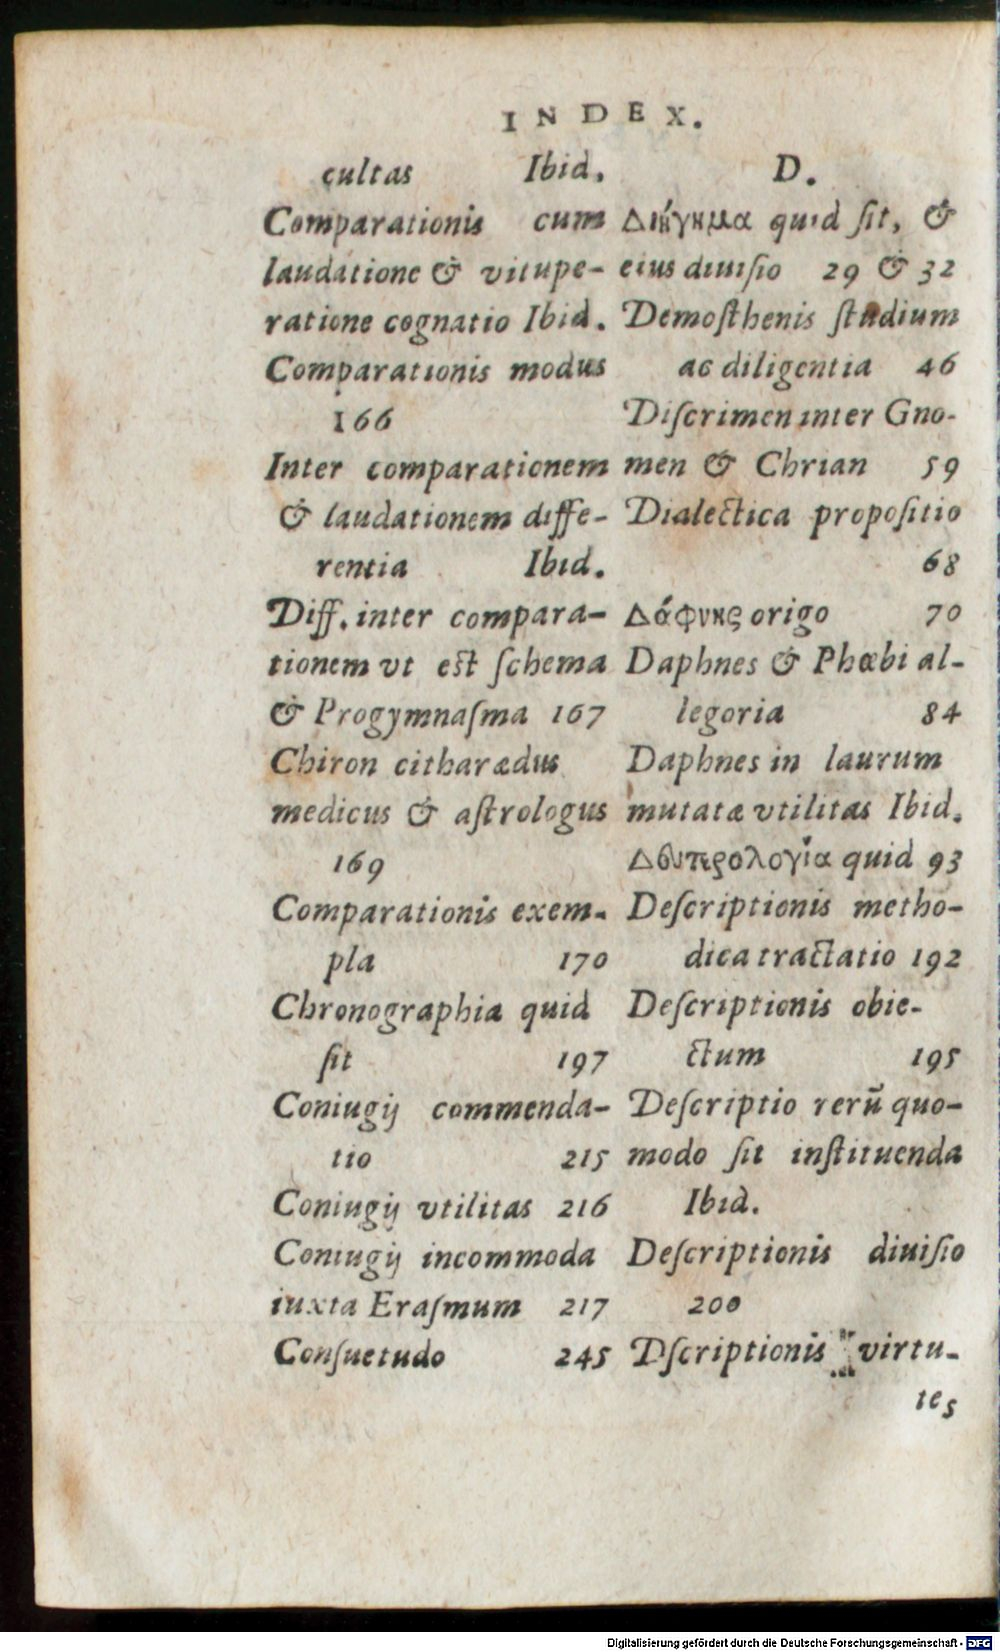 INDEX.
cultas Ibid.
Comparationis cum
laudatione & vitupe-
ratione cognatio Ibid.
Comparationis modus
166
Inter comparationem
& laudationem diffe-
rentia Ibid.
Diff. inter compara-
tionem vt est ſchema
& Progymnaſma 167
Chiron citharædus
medicus & aſtrologus
169
Comparationis exem-
pla 170
Chronographia quid
ſit 197
Coniugij commenda-
tio 215
Coniugij vtilitas 216
Coniugij incommoda
iuxta Eraſmum 217
Conſuetudo 245
D.
Διήγημα quid ſit, &
eius diuiſio 29 & 32
Demoſthenis ſtudium
ac diligentia 46
Diſcrimen inter Gno-
men & Chrian 59
Dialectica propoſitio
68
Δάφνης origo 70
Daphnes & Phœbi al-
legoria 84
Daphnes in laurum
mutatæ vtilitas Ibid.
Δευτερολογία quid 93
Deſcriptionis metho-
dica tractatio 192
Deſcriptionis obie-
ctum 195
Deſcriptio rerū quo-
modo ſit inſtituenda
Ibid.
Deſcriptionis diuiſio
200
Dſcriptionis virtu-
tes
Digitalisierung gefördert durch die Deutsche Forschungsgemeinschaft - DFG